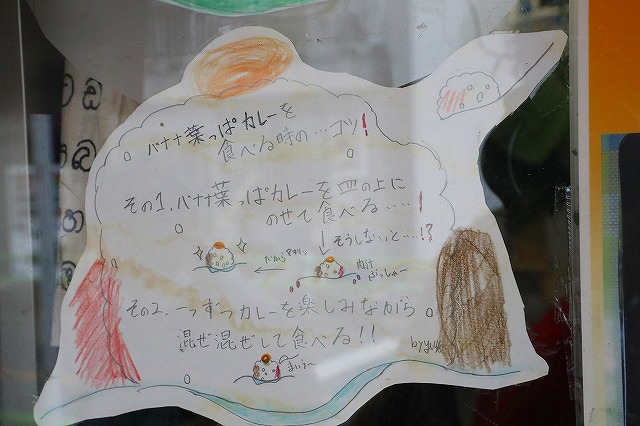 バナナ葉っぱカレーを
食べる時の…コツ!
その1.バナナ葉っぱカレーを皿の上に
のせて食べる……!
そうしないと…!?
だから
肉汁
ぶっしゃー
その2.一つずつカレーを楽しみながら
混ぜ混ぜして食べる!!
まいう〜